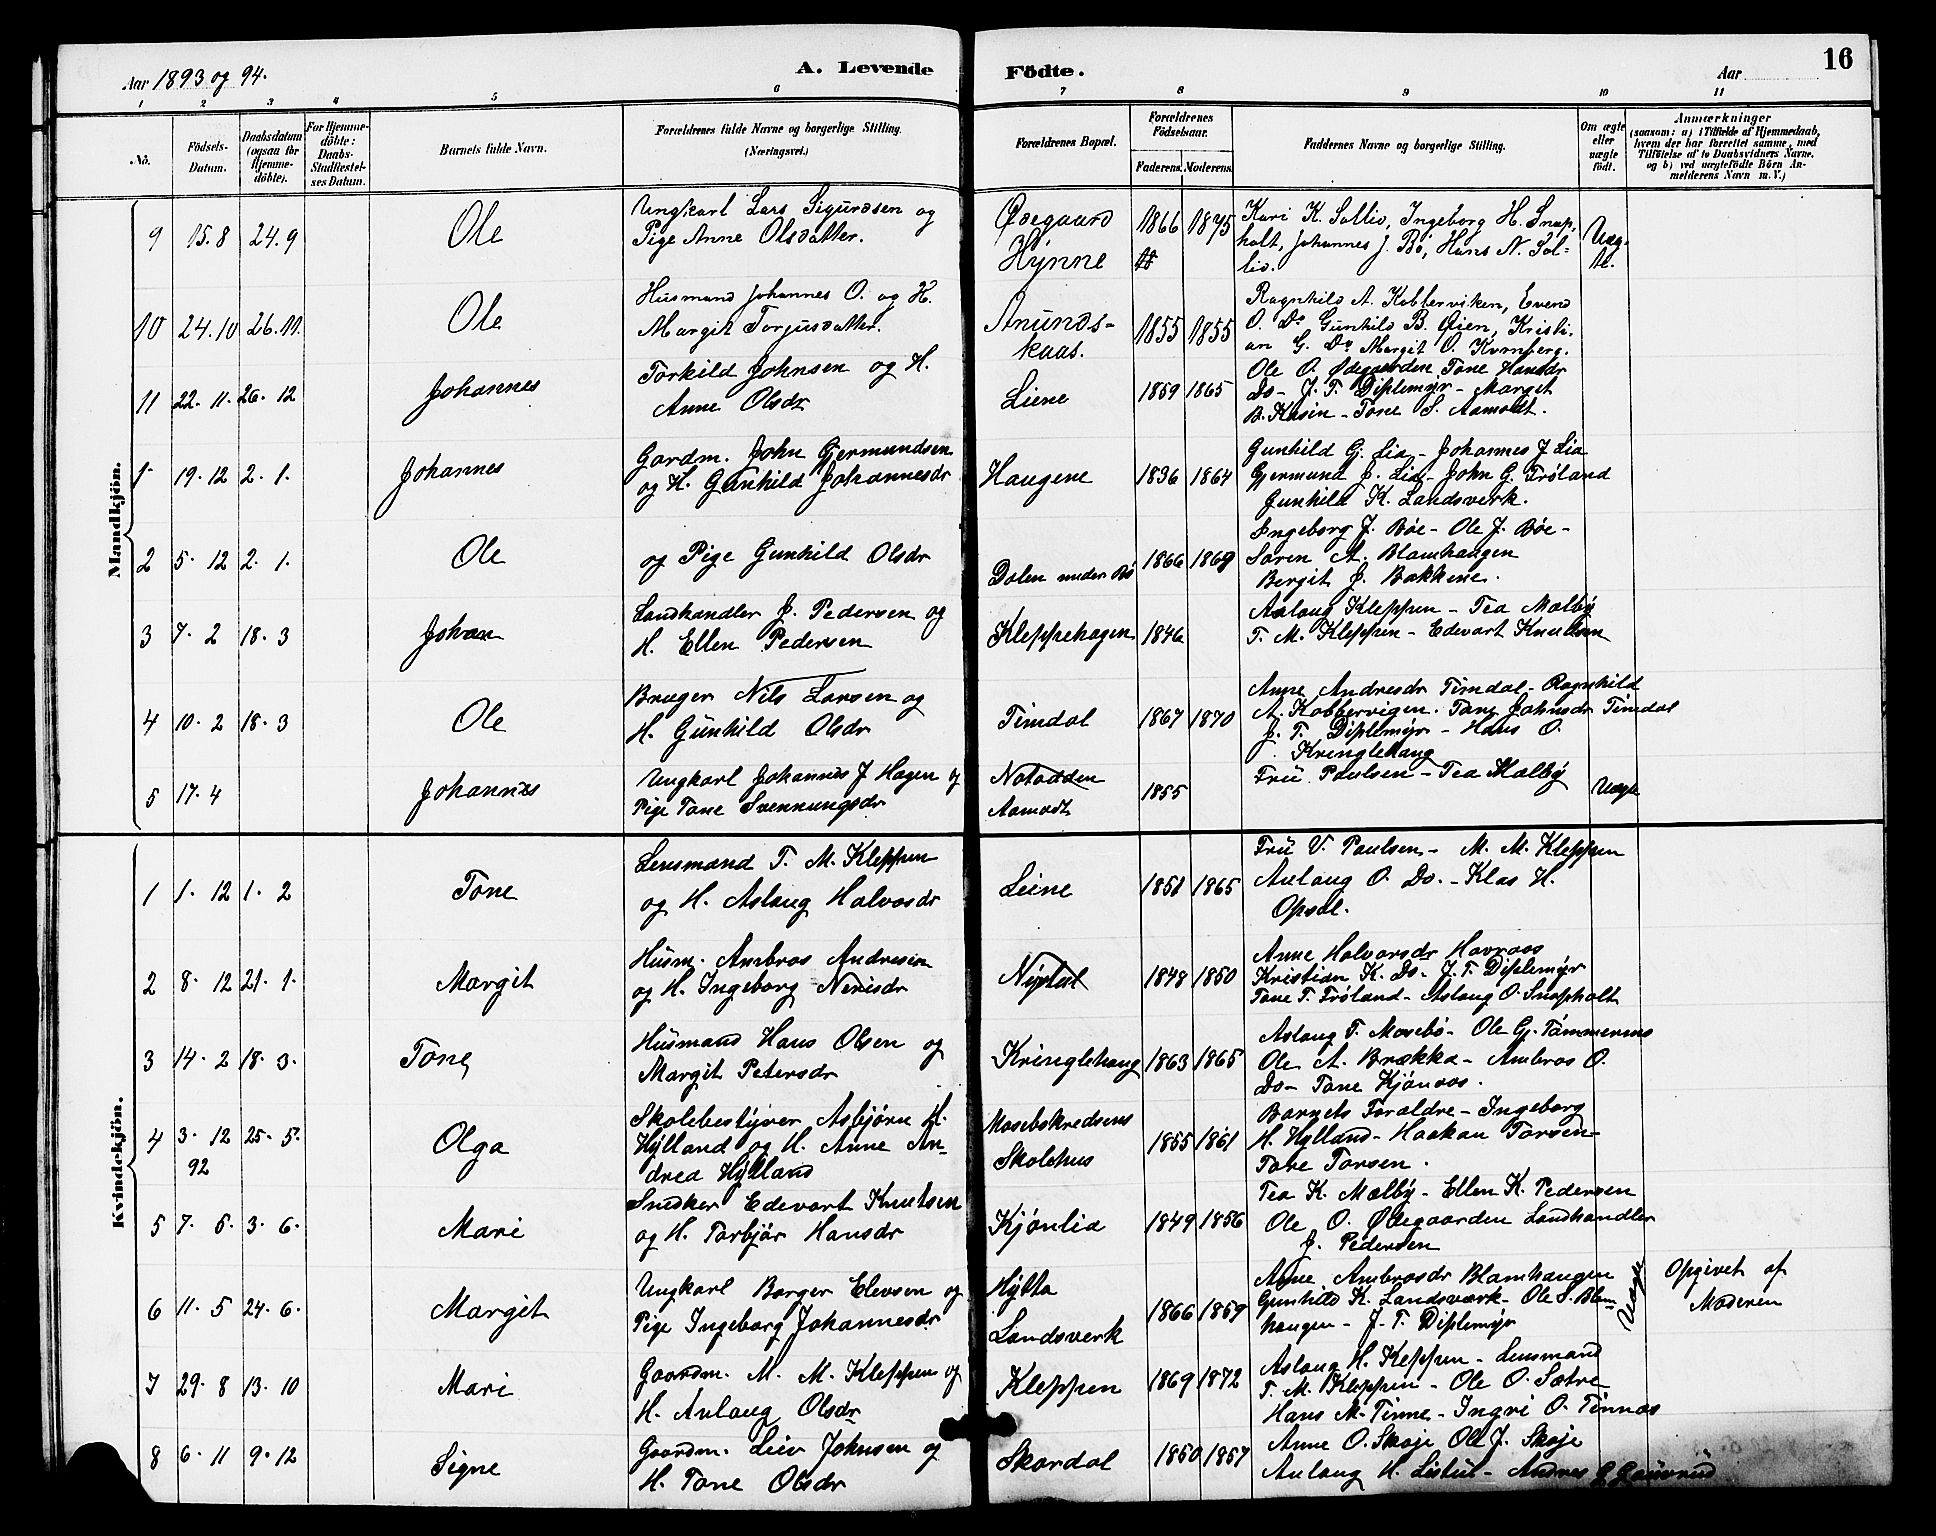 Aar 1893 og 94.
A. Levende Födte.
Aar
16
1 2 3 4 5 6 7 8 9 10 11
No.
Födsels-Datum.
Daabsdatum (ogsaa for Hjemme-döbte).
For Hjemme-döbte: Daabs-Stadfæstel-ses Datum.
Barnets fulde Navn.
Forældrenes fulde Navne og borgerlige Stilling. (Næringsvei.)
Forældrenes Bopæl.
Forældrenes Födselsaar.
Faderens. Moderens.
Faddernes Navne og borgerlige Stilling.
Om ægte eller uægte födt.
Anmærkninger
(saasom: a) i Tilfælde af Hjemmedaab, hvem der har forrettet samme, med Tilföielse af to Daabsvidners Navne, og b) ved uægtefödte Börn An-melderens Navn m. V.)
Mandkjön.
9 15.8 24.9 Ole
Ungkarl Lars Sigurdsen og
Pige Anne Olsdatter.
Ødegaard
Hynne
1866 1875
Kari K. Sollid, Ingeborg H. Snap-
holt, Johannes J. Bö, Hans N. Sol-
lid.
Uæg-
te.
10 24.10 26.11. Ole
Husmand Johannes O. og H.
Margit Torjusdatter.
Anunds-
kaas.
1855 1855
Ragnhild A. Kobberviken, Evend
O. Do Gunhild B. Øien, Kristi-
an G. Do Margit O. Kvmberg.
11 22. 11. 26. 12 Johannes
Torkild Johnsen og H.
Anne Olsdr
Liene
1859 1865
Ole O. Ødegaarden Tone Hansdr
Do- J. T. Diplemyr- Margit
B. Kasin- Tone S. Aamodt.
1 19. 12 2. 1. Johannes
Gardm. John Gjermundsen
og H. Gunhild Johannesdr
Haugene
1836 1864
Gunhild G. Lia- Johannes J Lia
Gjermund J. Lia- John G. Fröland
Gunhild K. Landsverk.
2 5. 12 2. 1. Ole
og Pige Gunhild Olsdr
Dalen under Bö
1866 1869
Ingeborg J. Böe- Ole J. Böe-
Søren A. Blamhaugen
Bergit J. Bakkene.
3 7. 2 18. 3 Johan
Landhandler J. Pedersen og
H. Ellen Pedersen
Kleppehagen
1846
Aslaug Kleppen- Tea Mælby
T. M. Kleppen- Edevart Knudsen
4 10. 2 18. 3 Ole
Bruger Nils Larsen og
H. Gunhild Olsdr
Timdal
1867 1870
Anne Andresdr Timdal- Ragnhild
A. Kobbervigen. Tone Johnsdr Timdal
J. T. Diplemyr- Hans O.
Kringlehaug
5 17. 4 Johannes
Ungkarl Johannes J Hagen og
Pige Tone Svennungsdr
Notodden
Aamodt
1855
Fru Paulsen- Tea Mælby
Uægte
Kvindekjön.
1 1. 12 1. 2 Tone
Lensmand T. M. Kleppen
og H. Aslaug Halvosdr
Leine
1851 1865
Fru V. Paulsen- M. M. Kleppen
Aulaug O. Do.- Klas H.
Opsal.
2 8. 12 21. 1. Margit
Husm. Ambros Andresen
og H. Ingeborg Nerisdr
Nystul
1848 1850
Anne Halvorsdr Havraas
Kristian K. Do- J. T. Diplemyr
Tone T. Fröland- Aslaug O. Snapholt
3 14. 2 18. 3. Tone
Husmand Hans Olsen og
Margit Petersdr
Kringlehaug
1863 1865
Aslaug T. Mosebö- Ole G. Tømmeraas
Ole A. Brækka- Ambros O.
Do- Tone Kjönaas.
4 3. 12 25. 5. Olga
92
Skolebestyrer Asbjørn H.
Hylland og H. Anne An-
drea Hylland
Mosebökredsens
Skolehus
1855 1861
Barnets Foraldre- Ingeborg
H. Hylland- Haakan Torsen-
Tore Torsen.
5 7. 5. 3. 6. Mari
Snedker Edevart Knutsen
og H. Torbjør Hansdr
Kjönlia
1849 1856
Tea K. Mælby- Ellen K. Pedersen
Ole O. Ødegaarden Landhandler
J. Pedersen
6 11. 5 24. 6. Margit
Ungkarl Borger Elevsen og
Pige Ingeborg Johannesdr
Hylta
Landsverk
1866 1859
Anne Ambrosdr Blamhaugen
Gunhild K. Landsværk- Ole S. Blam-
haugen- J. T. Diplemyr
Uægte
Opgivet af
Moderen
7 29. 8 13. 10 Mari
Gaardm. M. M. Kleppen og
H. Aulaug Olsdr
Kleppen
1869 1872
Aslaug H. Keppen- Lensmand
T. M. Kleppen- Ole O. Sætre
Hans M. Tinne- Ingri O. Tinnæs
8 6. 11 9. 12 Signe
Gaardm. Leiv Johnsen og
H. Tone Olsdr
Skardal
1850 1857
Anne O. Skoje Ole J. Skoje
Aulaug H. Listul- Andres G. Gauvrud